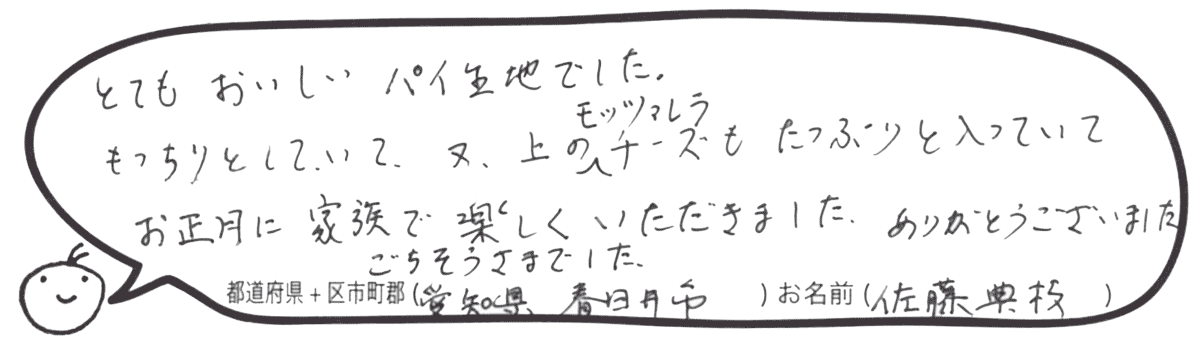 とてもおいしいパイ生地でした。
もっちりとしていて、又、上のモッツァレラチーズもたっぷりと入っていて
お正月に家族で楽しくいただきました、ありがとうございました
ごちそうさまでした、
都道府県+区市町郡(愛知県 春日井市 )お名前(佐藤典枝 )